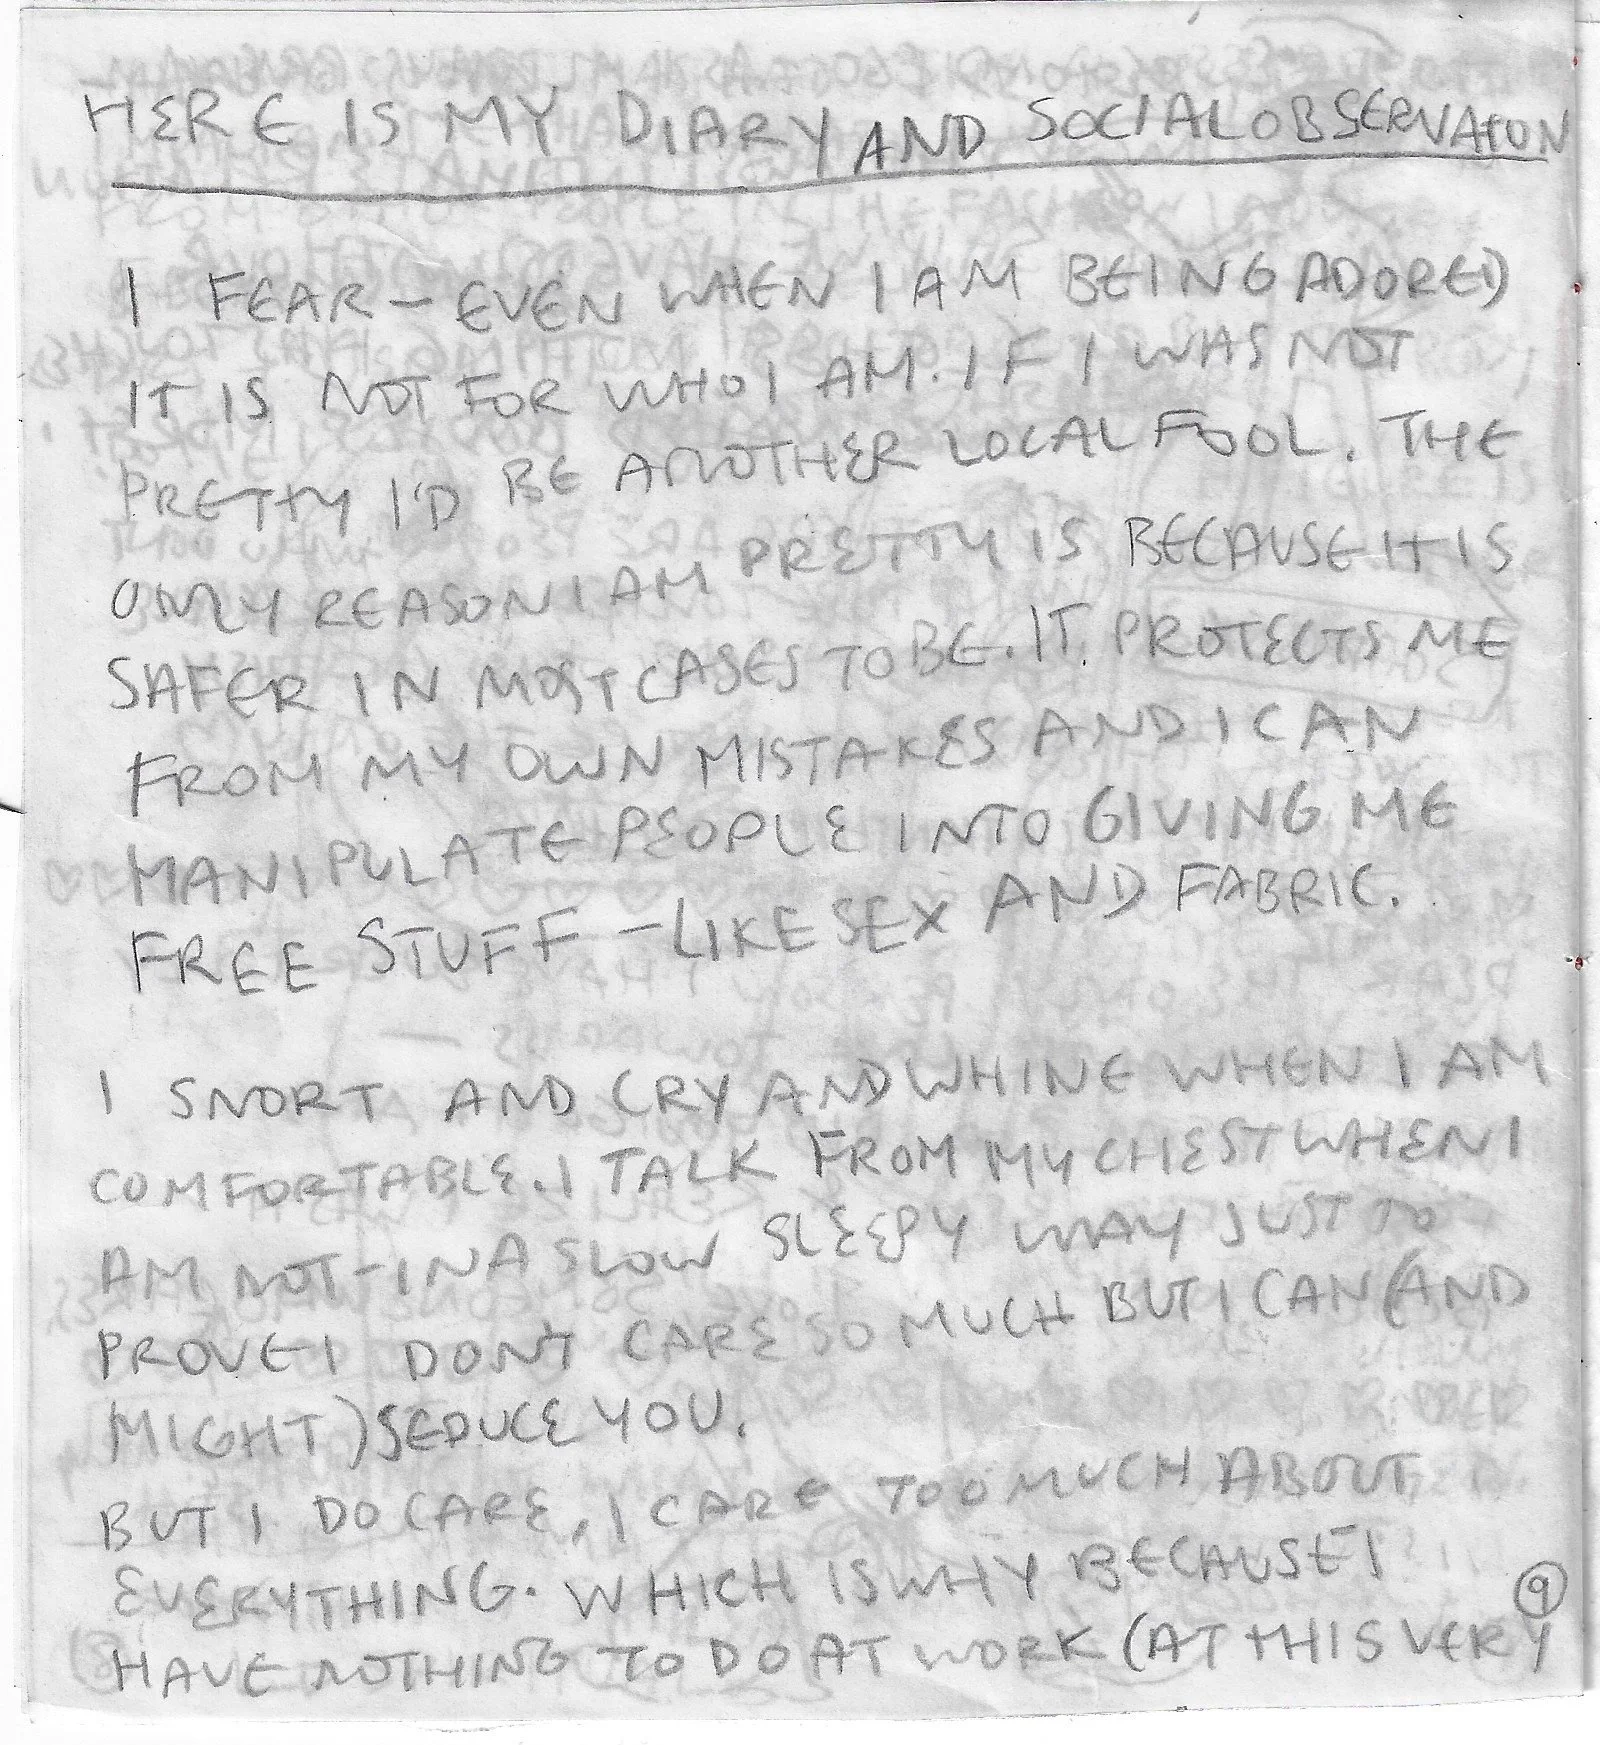 HERE IS MY DIARY AND SOCIAL OBSERVATON
I FEAR – EVEN WHEN I AM BEING ADORED
IT IS NOT FOR WHO I AM. IF I WAS NOT
PRETTY I'D BE ANOTHER LOCAL FOOL. THE
ONLY REASON I AM PRETTY IS BECAUSE IT IS
SAFER IN MOST CASES TO BE. IT PROTECTS ME
FROM MY OWN MISTAKES AND I CAN
MANIPULATE PEOPLE INTO GIVING ME
FREE STUFF – LIKE SEX AND FABRIC.
I SNORT AND CRY AND WHINE WHEN I AM
COMFORTABLE. I TALK FROM MY CHEST WHEN I
AM NOT – IN A SLOW SLEEPY WAY JUST TO
PROVE I DON'T CARE SO MUCH BUT I CAN (AND
MIGHT) SEDUCE YOU.
BUT I DO CARE, I CARE TOO MUCH ABOUT
EVERYTHING. WHICH IS WHY BECAUSE I
HAVE NOTHING TO DO AT WORK (AT THIS VERY
9